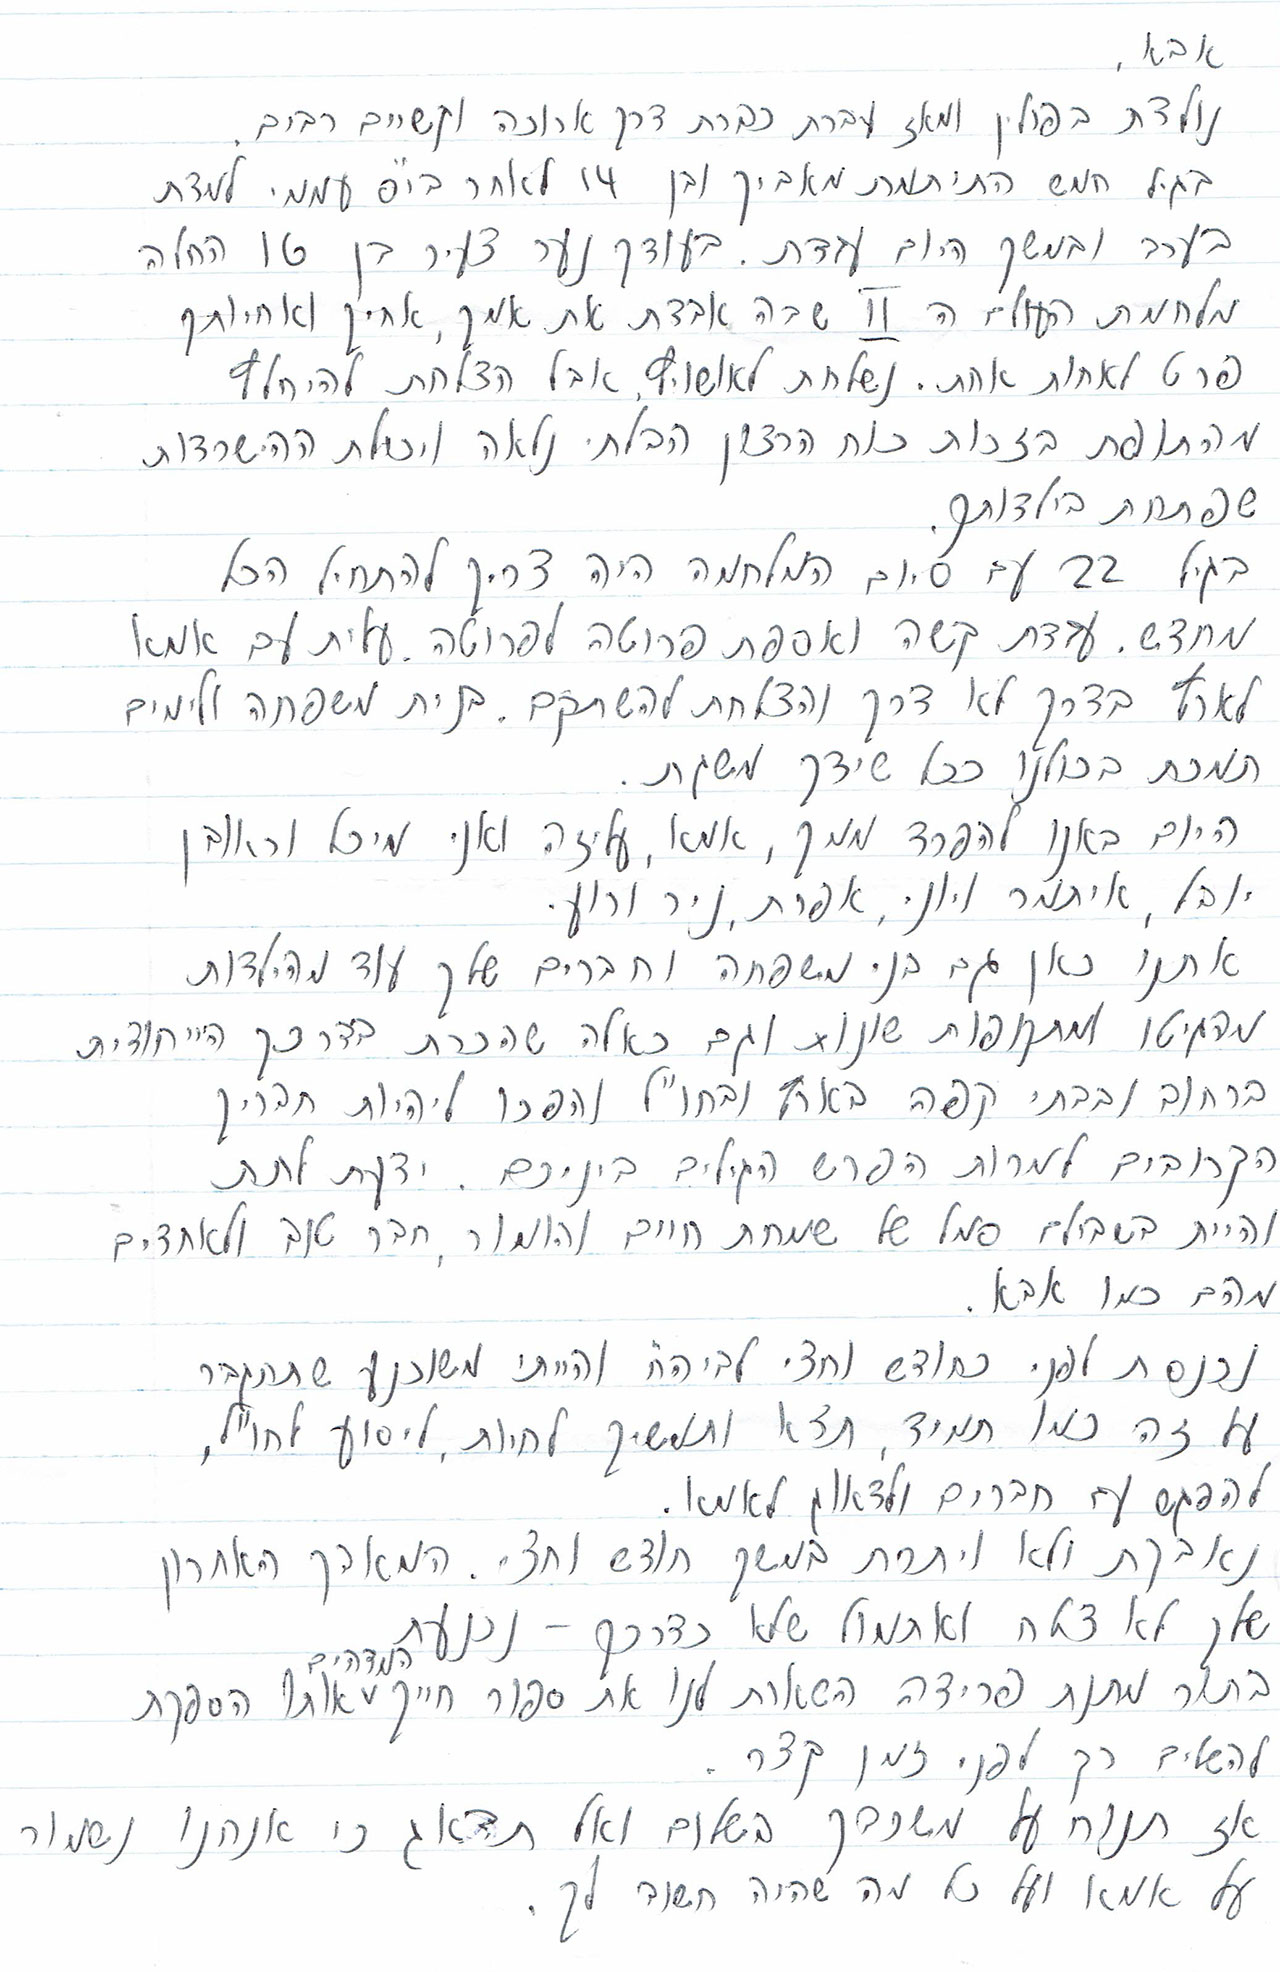 אבא,
נולדת בפולין ומאז עברת כברת דרך ארוכה וקשיים רבים.
בגיל חמש התיתמת מאביך ובן 14 לאחר בי"ס עממי למדת
בערב ובמשך היום עבדת. בעודך נער צעיר בן טו החלה
מלחמת העולם ה II שבה אבדת את אמך, אחיך ואחיותיך
פרט לאחות אחת. נשלחת לאושויץ, אבל הצלחת להיחלץ
מהתופת בזכות כוח הרצון הבלתי נלאה ויכולת ההישרדות
שפתחת בילדותך.
בגיל 22 עם סיום המלחמה היה צריך להתחיל הכל
מחדש. עבדת קשה ואספת פרוטה לפרוטה. עלית עם אמא
לארץ בדרך לא דרך והצלחת להשתקם. בנית משפחה ולימים
תמכת בכולנו ככל שידך משגת.
היום באנו להפרד ממך, אמא, עליזה ואני מיכל וראובן
יובל, איתמר ויוני, אפרת, ניר ורוע.
אתנו כאן גם בני משפחה וחברים שלך עוד מהילדות
מהגיטו ומתקופות שונות וגם כאלה שהכרת בדרכך הייחודית
ברחוב ובבתי קפה בארץ ובחו"ל והפכו ליהיות חבריך
הקרובים למרות הפרש הגילים ביניכם. ידעת לתת
והיית בשבילם סמל של שמחת חיים והומור, חבר טוב ולאחדים
מהם כמו אבא.
נכנסת לפני כחודש וחצי לביה"ח והייתי משוכנע שתתגבר
על זה כמו תמיד, תצא ותמשיך לחיות, ליסוע לחו"ל,
להפגש עם חברים ולדאוג לאמא.
נאבקת ולא ויתרת במשך חודש וחצי. המאבק האחרון
שלך לא צלח ואתמול שלא כדרכך – נכנעת
המדהים
בתור מתנת פרידה השארת לנו את ספור חייך אותו הספקת
להשלים רק לפני זמן קצר.
אז תנוח על משכבך בשלום ואל תדאג כי אנחנו נשמור
על אמא ועל כל מה שהיה חשוב לך.